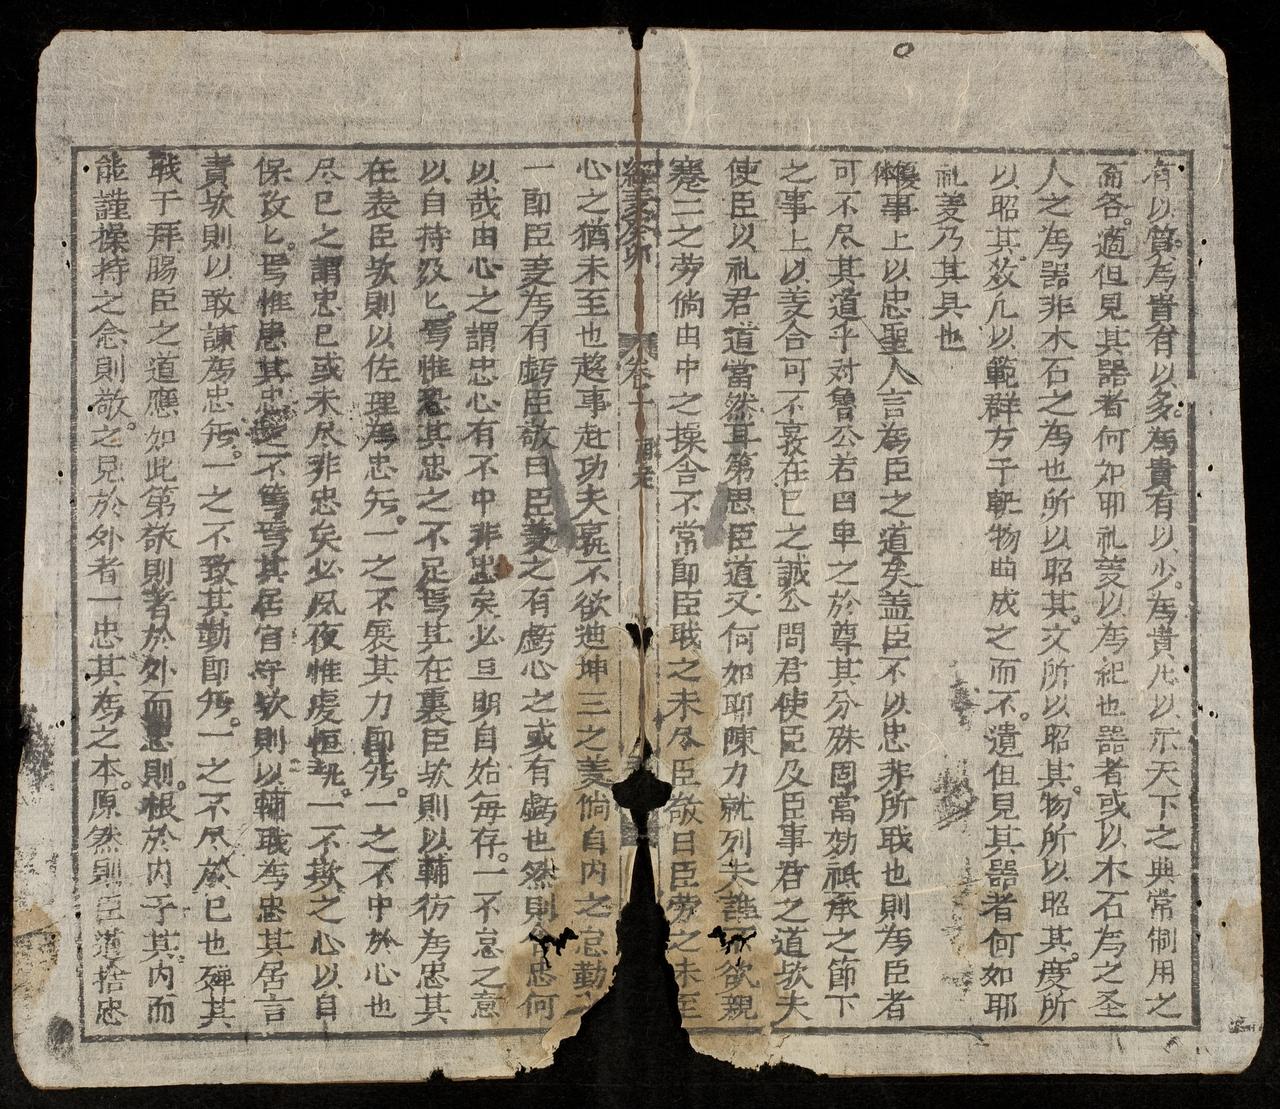 有以質為貴有以多為貴有以少為貴凡以示天下之典常制用之
而各適但見其器者何如耶礼羙以為紀也器者或以木石為之圣
人之為器非木石之為也所以昭其文所以昭其物所以昭其度所
以昭其教凡以範群方于軌物曲成之而不遺但見其器者何如耶
礼羙乃其具也
事上以忠聖人言為臣之道矣盖臣不以忠非所职也則為臣者
可不尽其道乎对魯公若曰卑之於尊其分殊固當効祗承之節下
之事上以羙合可不敦在己之誠公問君使臣及臣事君之道欤夫
使臣以礼君道當然耳第思臣道又何如耶陳力就列夫誰欲親
蹇二之劳倘由中之操舍不常即臣职之未尽臣敬曰臣劳之未至
卷二
心之猶未至也趍事赴功夫寔不欲迆坤三之羙倘自内之怠勤
一即臣羙為有虧臣敬曰臣羙之有虧心之或有虧也然則忠何
以哉由心之謂忠心有不中非忠矣必旦明自始每存一不怠之意
以自持汲匕焉惟恐其忠之不足焉其在裏臣欤則以輔彷為忠其
在表臣欤則以佐理為忠旡一之不展其力即旡一之不中於心也
尽己之謂忠己或未尽非忠矣必夙夜惟虔恒一不欺之心以自
保孜匕焉惟患其忠之不篤焉其居官守欤則以輔职為忠其居言
責欤則以敢諫為忠旡一之不致其勤即旡一之不尽於己也殫其
戰于拜腸臣之道應如此第敬則著於外而忠則根於内于其内而
能謹操持之念則敬之見於外者一忠其為之本原然則臣道捨忠